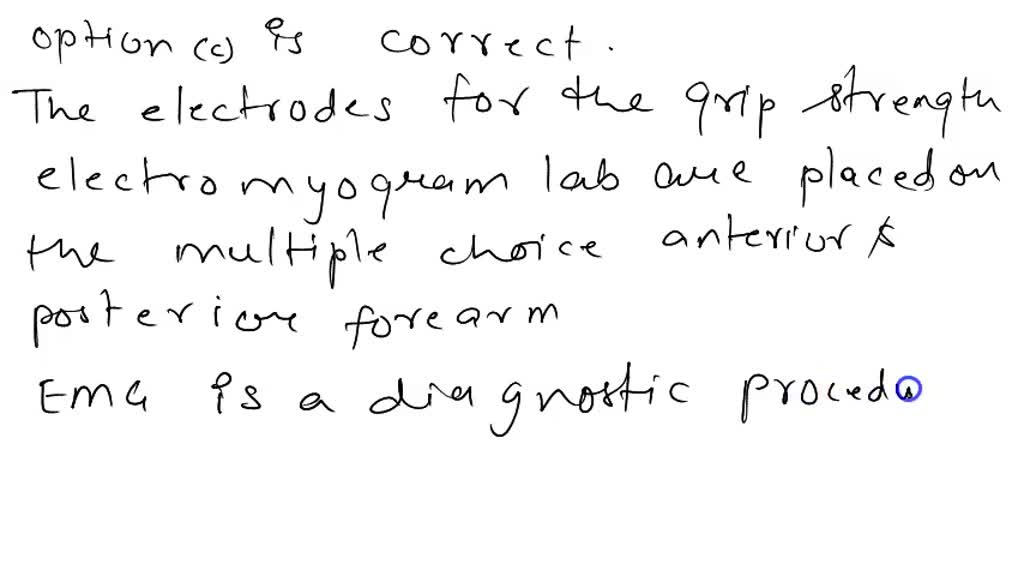 option (c) is correct.
The electrodes for the grip strength
electromyogram lab are placed on
the multiple choice anterior &
posterior forearm
EMG is a diagnostic proced